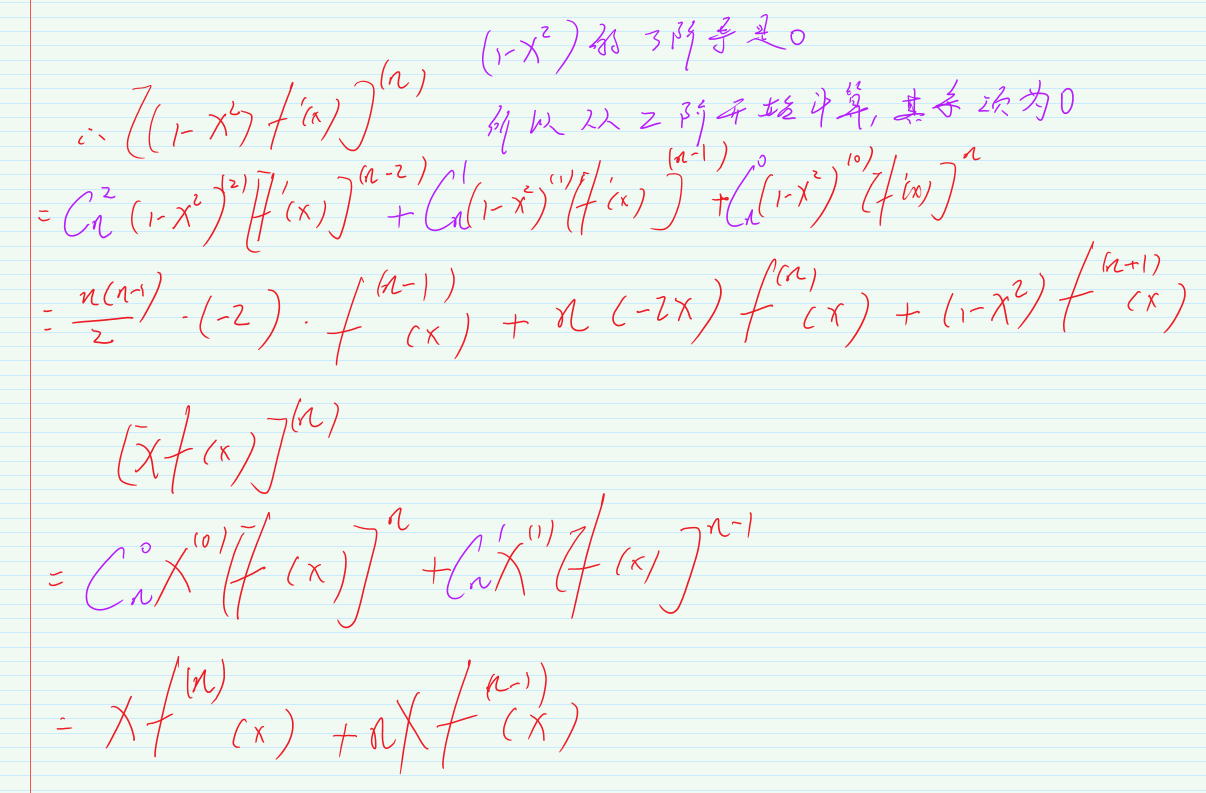 (1-x²)的3阶导是0
∴ [(1-x²)f'(x)]^(n)
所以从2阶开始计算,其余项为0
= C_n^2 (1-x²)^(2) [f'(x)]^(n-2) + C_n^1 (1-x²)^(1) [f'(x)]^(n-1) + C_n^0 (1-x²)^(0) [f'(x)]^n
= n(n-1)/2 · (-2) · f^(n-1)(x) + n(-2x) f^(n)(x) + (1-x²) f^(n+1)(x)
[xf(x)]^(n)
= C_n^0 x^(0) [f(x)]^n + C_n^1 x^(1) [f(x)]^n-1
= x f^(n)(x) + nx f^(n-1)(x)